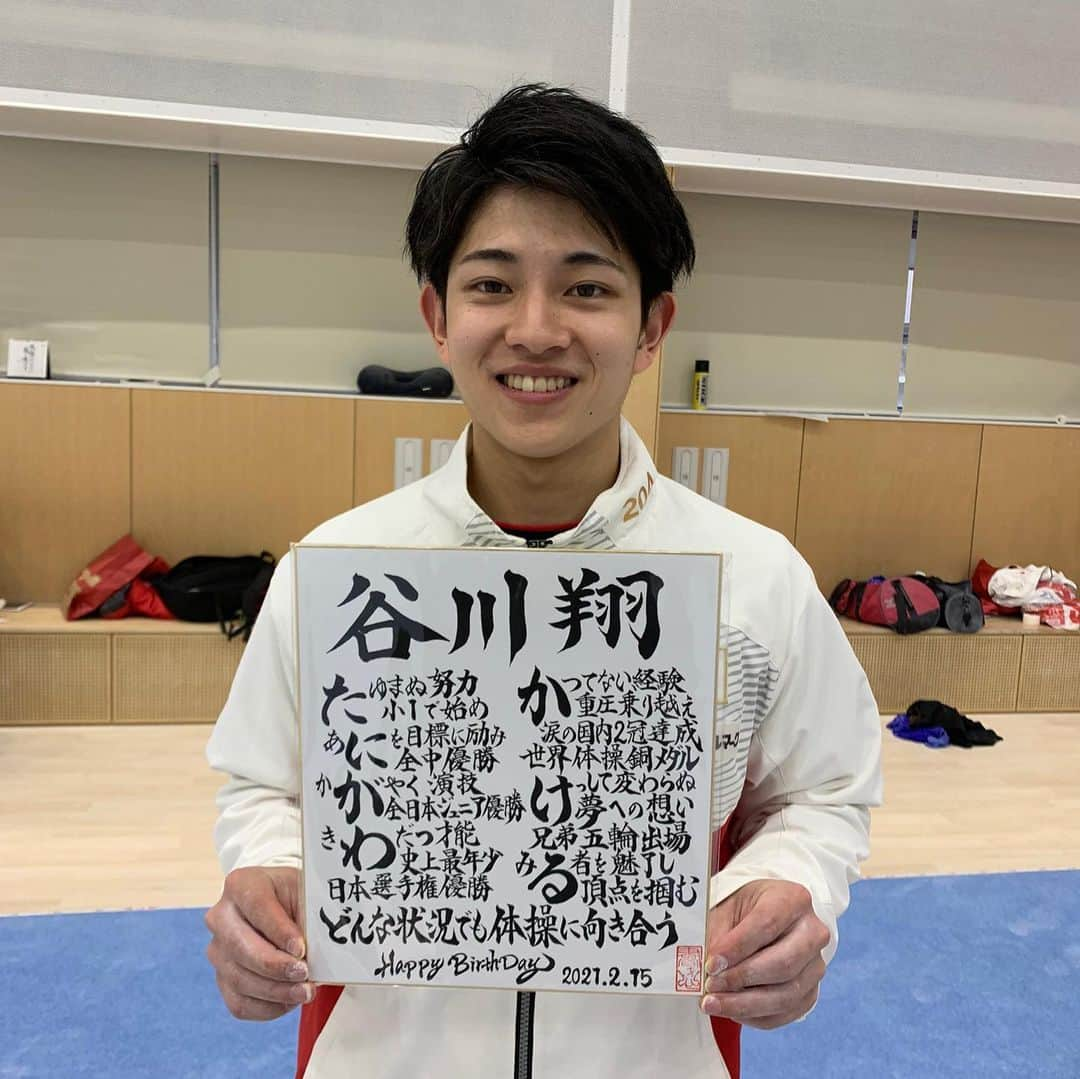 谷川翔
たゆまぬ努力
小1で始め
あにを目標に励み
全中優勝
かがやく演技
全日本ジュニア優勝
きわだつ才能
史上最年少
日本選手権優勝
かつてない経験
重圧乗り越え
涙の国内2冠達成
世界体操銅メダル
けっして変わらぬ
夢への想い
兄弟五輪出場
みる者を魅了し
頂点を掴む
どんな状況でも体操に向き合う
Happy BirthDay 2021.2.15
204